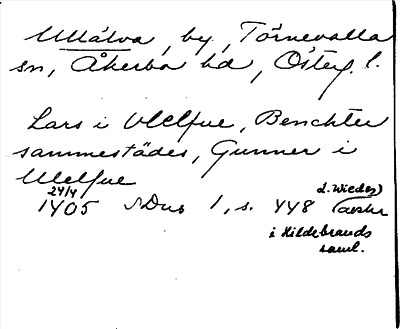 Ullälva, by, Törnevalla
sn, Åkerbo hd, Österg. l.
Lars i Vlelfue, Benchter
sammestädes, Gunner i
Ulelfue
24/4
1405 SDns 1, s. 448
i Hildebrands
saml.